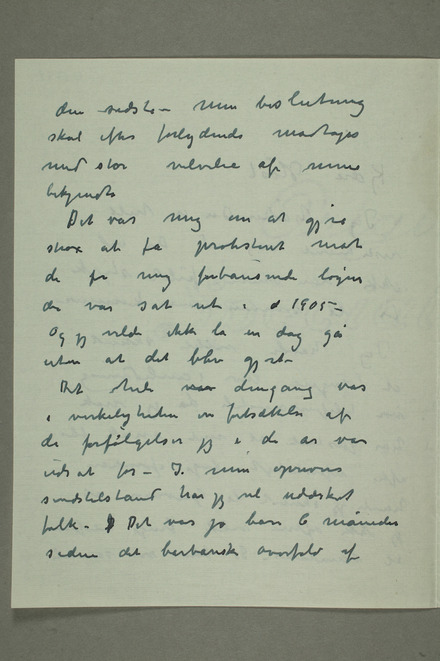 den sidste – min beslutning
skal efter forlydende modtages
med stor velvilie af mine
bekjendte
Det var mig om at gjøre
strax at få protestert mot
de for mig forbausende løgne
der var sat ut i 1905 –
Og jeg vilde ikke la en dag gå
uten at det blev gjort –
Det hele dengang var
i virkeligheden en fortsættelse af
de forfølgelser jeg i de år var
udsat for – I min oprevne
sindstilstand har jeg vel uddskat
folk – Det var jo bare 6 måneder
siden det barbariske overfald af